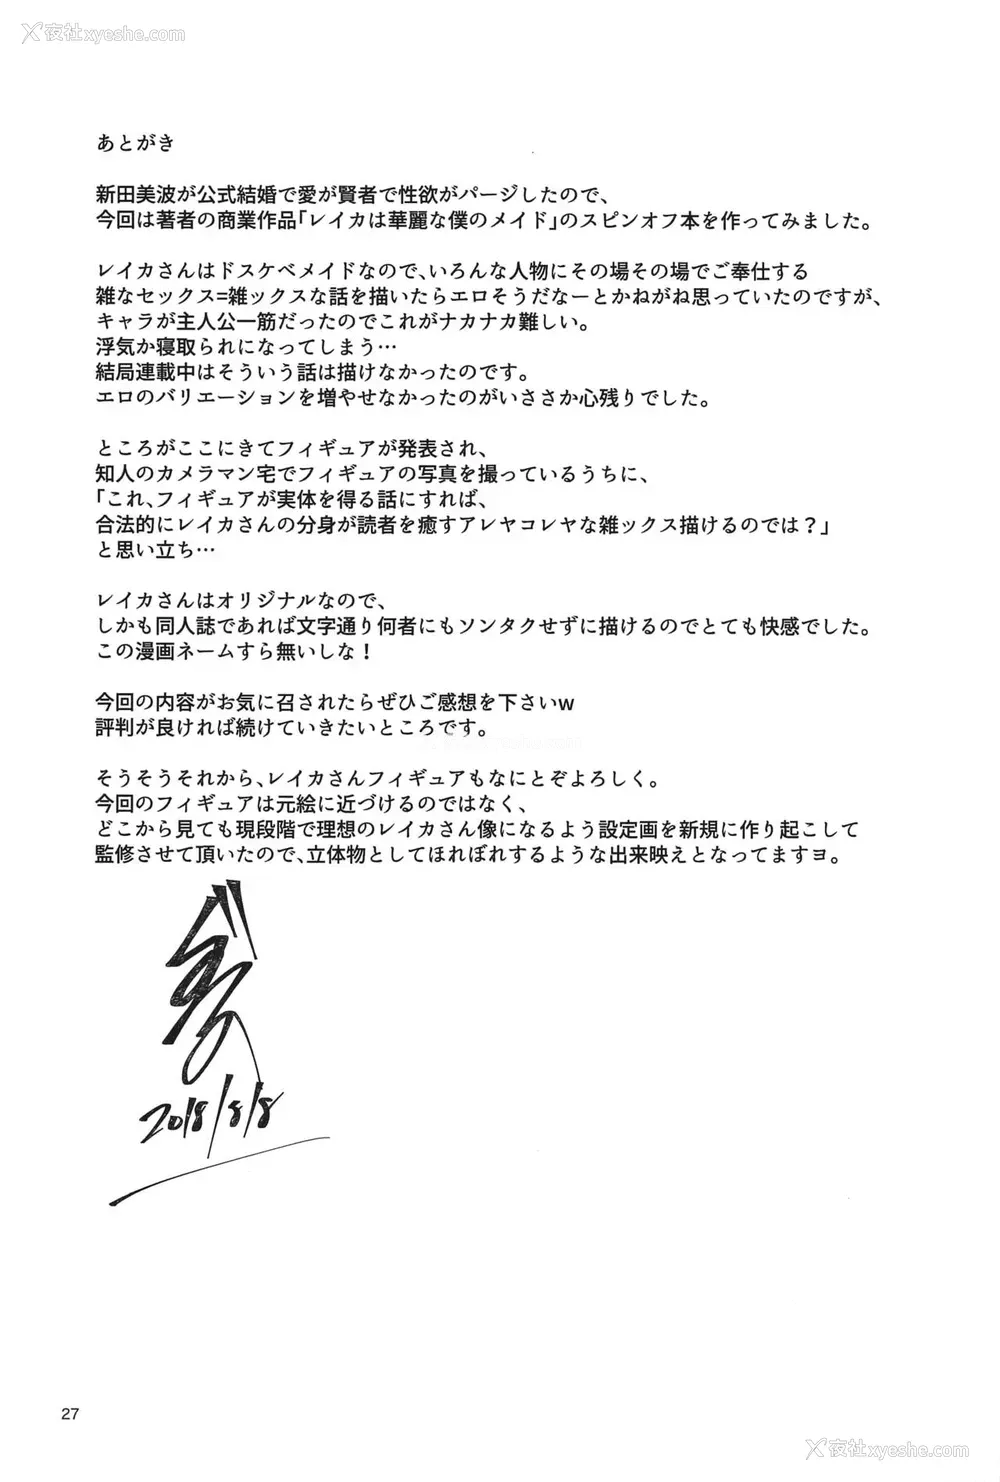 夜社xyeshe.com
あとがき
新田美波が公式結婚で愛が賢者で性欲がパージしたので、
今回は著者の商業作品「レイカは華麗な僕のメイド」のスピンオフ本を作ってみました。
レイカさんはドスケベメイドなので、いろんな人物にその場その場でご奉仕する
雑なセックス=雑ックスな話を描いたらエロそうだなーとかねがね思っていたのですが、
キャラが主人公一筋だったのでこれがナカナカ難しい。
浮気か寝取られになってしまう…
結局連載中はそういう話は描けなかったのです。
エロのバリエーションを増やせなかったのがいささか心残りでした。
ところがここにきてフィギュアが発表され、
知人のカメラマン宅でフィギュアの写真を撮っているうちに、
「これ、フィギュアが実体を得る話にすれば、
合法的にレイカさんの分身が読者を癒すアレヤコレヤな雑ックス描けるのでは？」
と思い立ち…
レイカさんはオリジナルなので、
しかも同人誌であれば文字通り何者にもソンタクせずに描けるのでとても快感でした。
この漫画ネームすら無いしな！
今回の内容がお気に召されたらぜひご感想を下さいw
評判が良ければ続けていきたいところです。
そうそうそれから、レイカさんフィギュアもなにとぞよろしく。
今回のフィギュアは元絵に近づけるのではなく、
どこから見ても現段階で理想のレイカさん像になるよう設定画を新規に作り起こして
監修させて頂いたので、立体物としてほれぼれするような出来映えとなってますヨ。
2018/8/8
27
夜社xyeshe.com